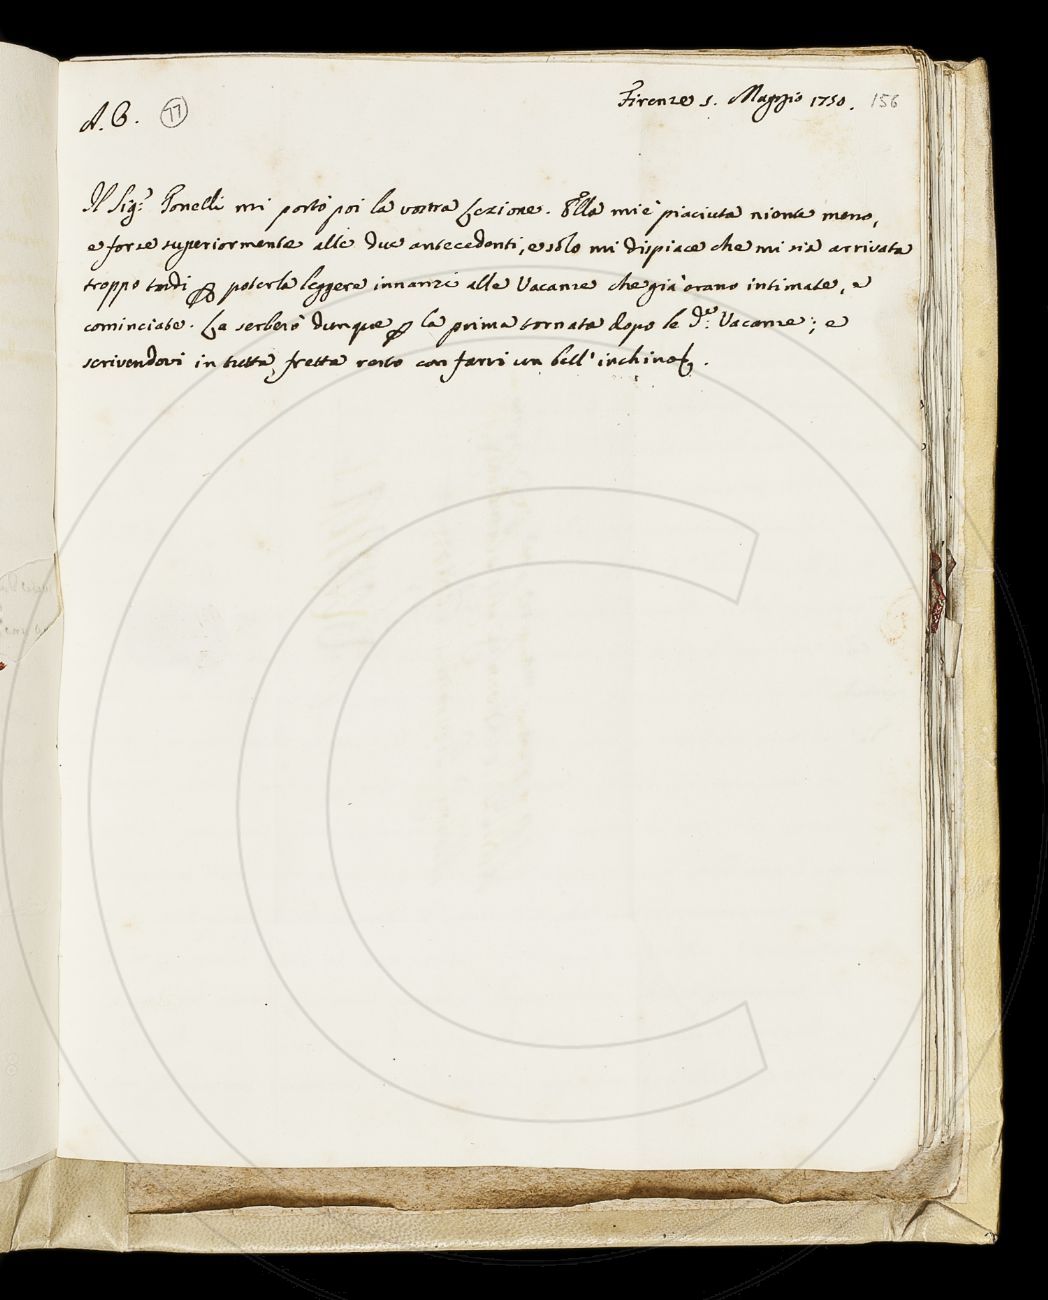 Firenze 5. Maggio 1750. 156
A. C. 77
Il Sig.r Tonelli mi portò poi la vostra Lezione. Ella mi è piaciuta niente meno,
e forse superiormente alle due antecedenti, e solo mi dispiace che mi sia arrivata
troppo tardi p poterla leggere innanzi alle Vacanze che già erano intimate, e
cominciate. La serberò dunque p la prima tornata dopo le d.e Vacanze; e
scrivendovi in tutta fretta resto con farvi un bell' inchino.